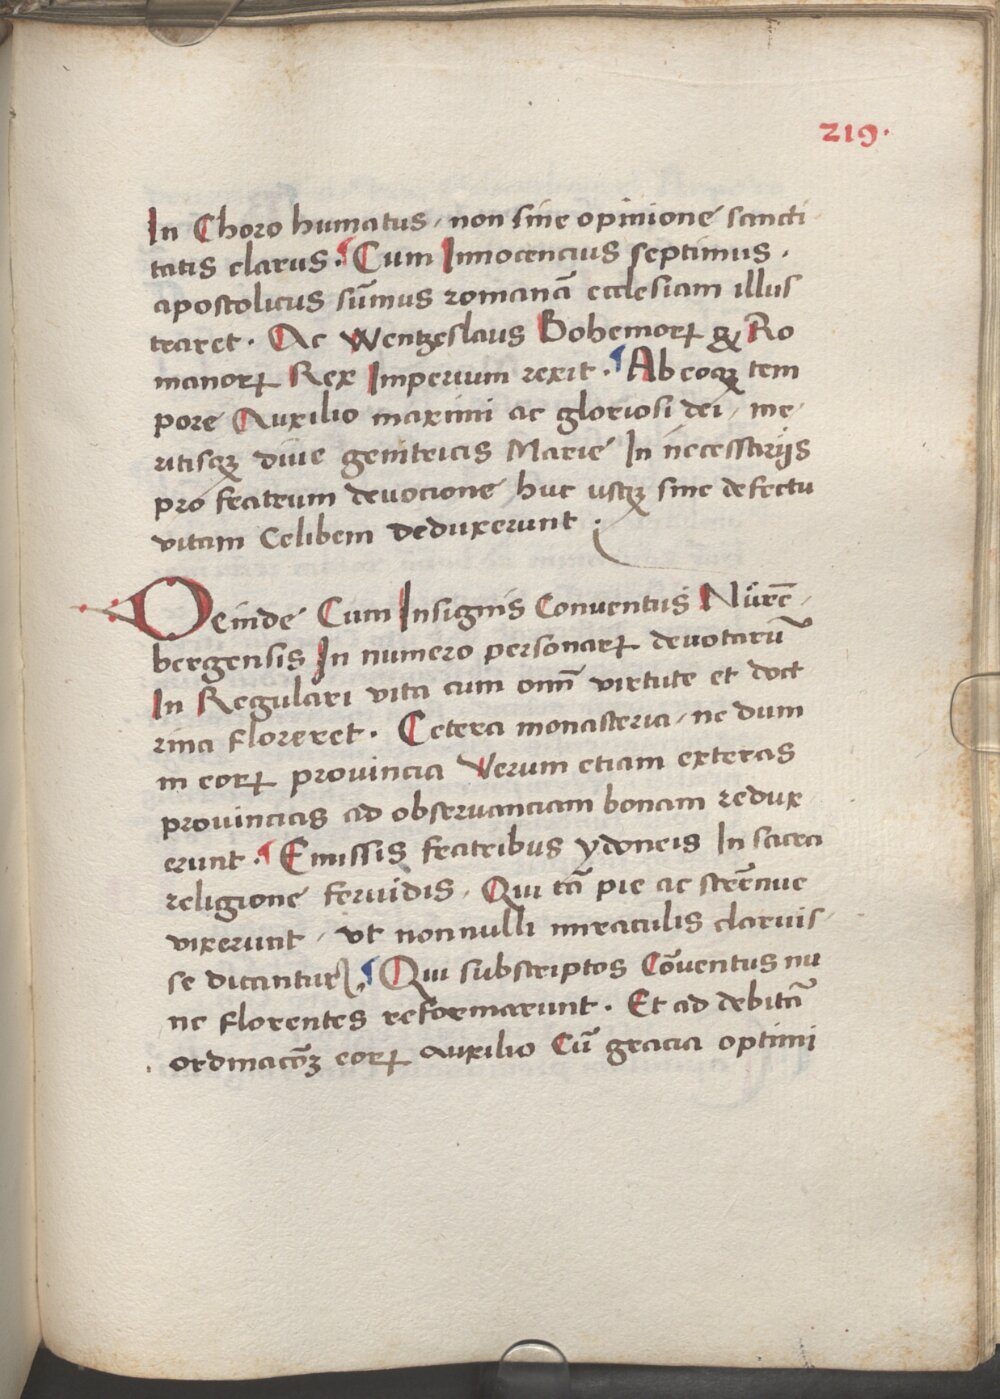 219.
In Choro humatus, non sine opinione sancti
tatis clarus. ¶ Cum Innocencius septimus,
apostolicus sūmus romanā ecclesiam illus
traret. Ac Wentzeslaus Bohemoꝝ & Ro
manoꝝ Rex Imperium rexit. ¶ Ab eoqꝫ tem
pore Auxilio maximi ac gloriosi dei, me
ritisqꝫ diue genitricis Marie In necessarijs
pro fratrum deuocione huc usqꝫ sine defectu
vitam Celibem deduxerunt.
Deinde Cum Insignis Conuentus Nůrē-
bergensis In numero personaꝝ deuotarū
In Regulari vita cum omī virtute et doct
rina floreret. Cetera monasteria, ne dum
in eoꝝ prouincia Verum etiam exteras
prouincias ad obseruanciam bonam redux
erunt. ¶ Emissis fratribus ydoneis In sacra
religione feruidis, Qui tā pie ac strēnue
vixerunt, vt nonnulli miraculis claruis-
se dicantur, ¶ Qui subscriptos Cōuentus nu
nc florentes reformarunt. Et ad debitā
ordinacōꝫ eoꝝ auxilio Cū gracia optimi